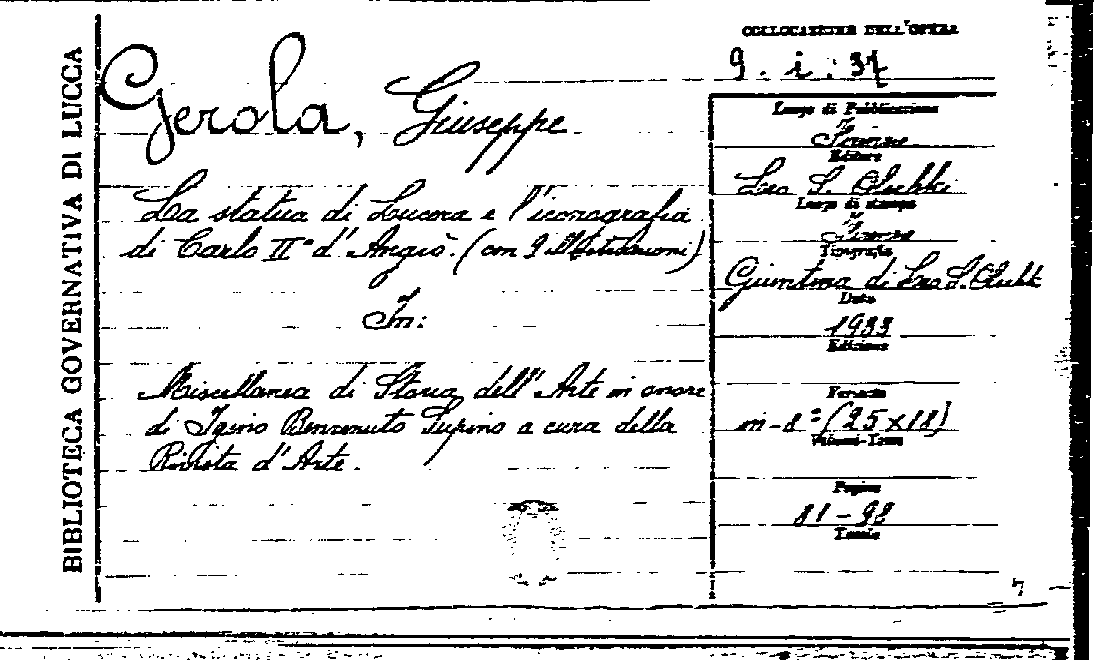 BIBLIOTECA GOVERNATIVA DI LUCCA
Gerola, Giuseppe
La statua di Lucera e l'iconografia
di Carlo II° d'Angiò. (con 9 illustrazioni)
In:
Miscellanea di Storia dell'Arte in onore
di Igino Benvenuto Supino a cura della
Rivista d'Arte.
COLLOCAZIONE DELL'OPERA
9. i: 37
Luogo di Pubblicazione
Firenze
Editore
Leo S. Olschki
Luogo di stampa
Firenze
Tipografia
Giuntina di Leo S. Olschk
Data
1933
Edizione
Formato
in-8° (25x18)
Volumi-Tomi
Pagine
81-98
Tavole
7